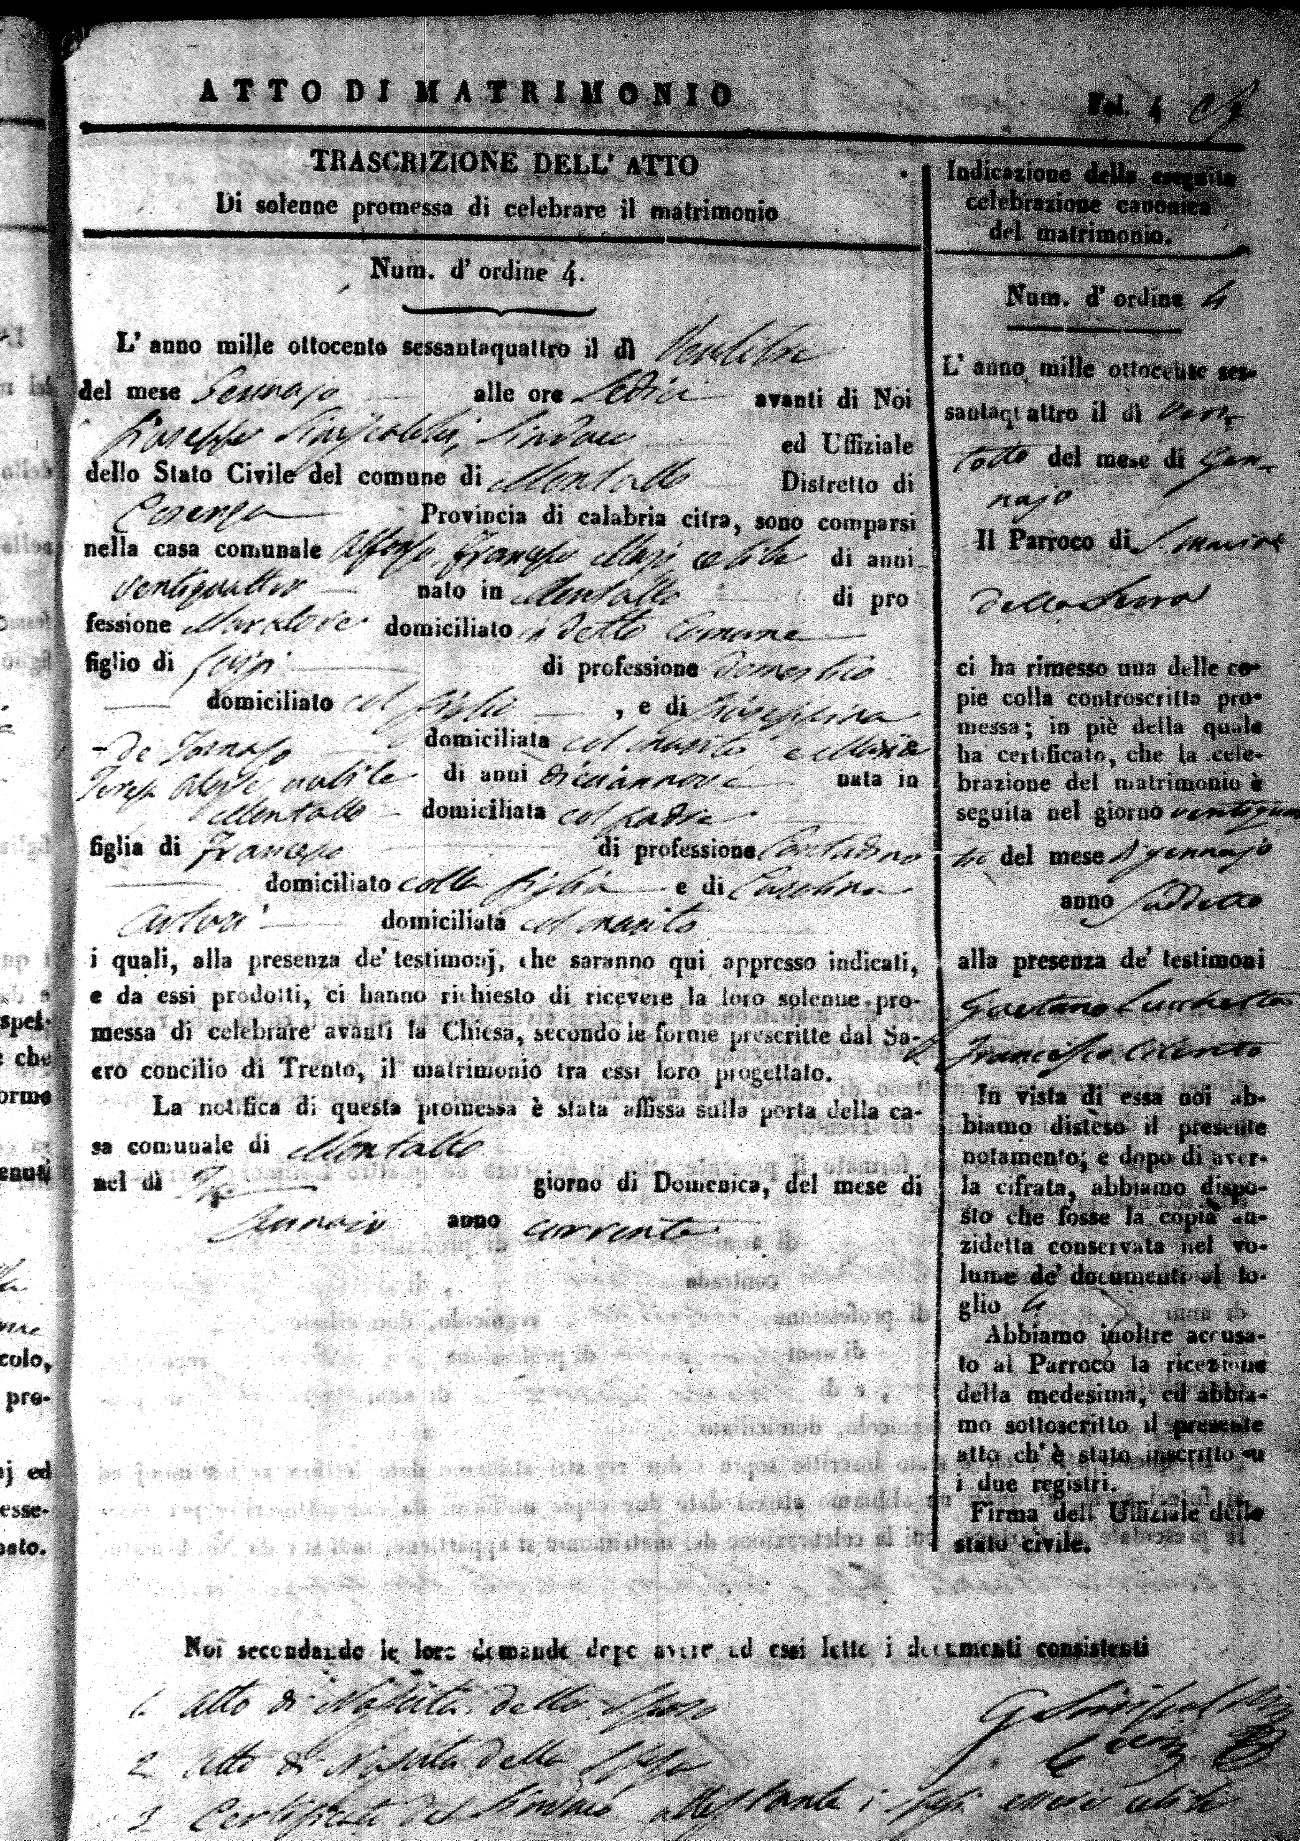 ATTO DI MATRIMONIO
Fol. 4
TRASCRIZIONE DELL' ATTO
Di solenne promessa di celebrare il matrimonio
Num. d' ordine 4.
L' anno mille ottocento sessantaquattro il dì Ventitre
del mese Gennajo alle ore Sedici avanti di Noi
Giuseppe Sinibaldi, Sindaco ed Uffiziale
dello Stato Civile del comune di Montalto Distretto di
Cosenza Provincia di calabria citra, sono comparsi
nella casa comunale Alfonso Francesco celibe di anni
ventiquattro nato in Montalto di pro
fessione Muratore domiciliato in detto Comune
figlio di Luigi di professione domestico
domiciliato col figlio, e di Giuseppina
de Tomaso domiciliata col marito e Maria
Teresa nubile di anni diciannove nata in
Montalto domiciliata col padre
figlia di Francesco di professione Contadino
domiciliato colla figlia e di Carolina
domiciliata col marito
i quali, alla presenza de' testimonj, che saranno qui appresso indicati,
e da essi prodotti, ci hanno richiesto di ricevere la loro solenne pro-
messa di celebrare avanti la Chiesa, secondo le forme prescritte dal Sa-
cro concilio di Trento, il matrimonio tra essi loro progettato.
La notifica di questa promessa è stata affissa sulla porta della ca-
sa comunale di Montalto
nel dì giorno di Domenica, del mese di
Gennaio anno corrente
Indicazione della eseguita
celebrazione canonica
del matrimonio.
Num. d' ordine 4
L' anno mille ottocento ses-
santaquattro il dì vent-
totto del mese di Gen-
najo
Il Parroco di S. Maria
della Serra
ci ha rimesso una delle co-
pie colla controscritta pro-
messa; in piè della quale
ha certificato, che la cele-
brazione del matrimonio è
seguita nel giorno
del mese di gennajo
anno suddetto
alla presenza de' testimoni
Gaetano Lucchetta
Francesco Cilento
In vista di essa noi ab-
biamo disteso il presente
notamento; e dopo di aver-
la cifrata, abbiamo dispo-
sto che fosse la copia an-
zidetta conservata nel vo-
lume de' documenti al fo-
glio 4
Abbiamo inoltre accusa-
to al Parroco la ricezione
della medesima, ed abbia-
mo sottoscritto il presente
atto ch' è stato inscritto su
i due registri.
Firma dell Uffiziale dello
stato civile.
Noi secondando le loro domande dopo avere ad essi letto i documenti consistenti
1. Atto di Nascita dello Sposo
2. Atto di Nascita della Sposa
3. Certificato del Sindaco attestante i sposi essere